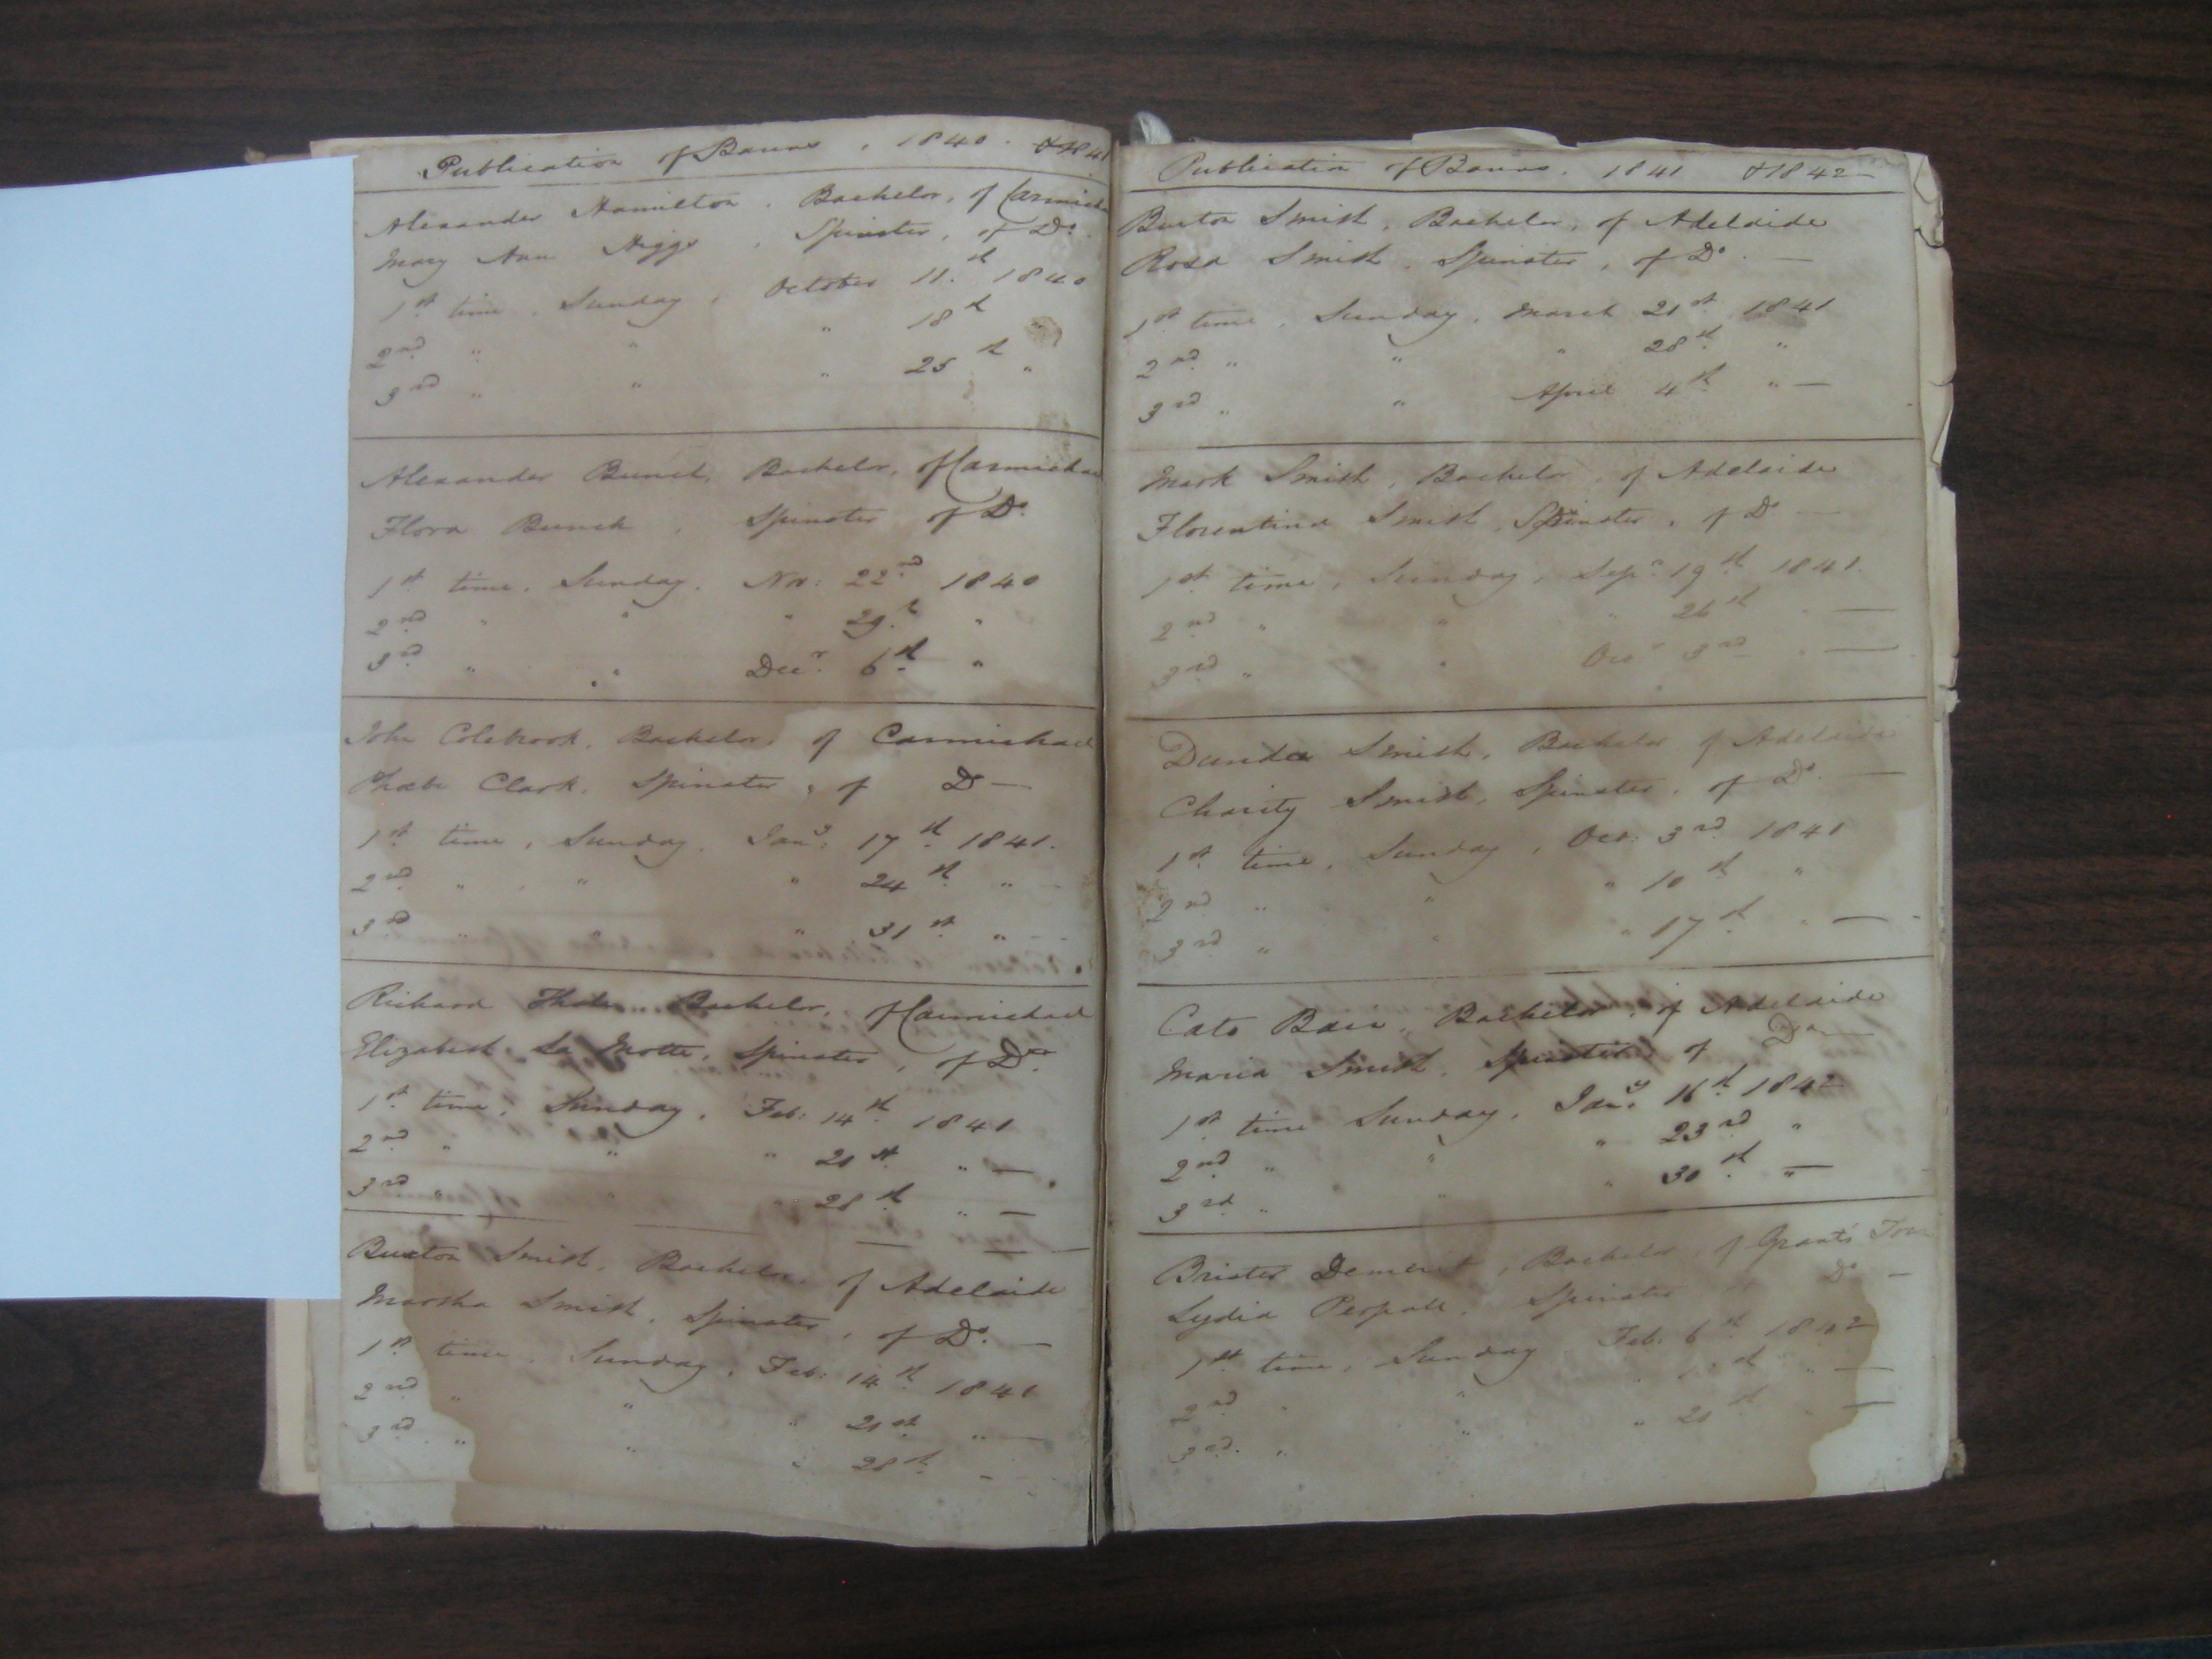 Publication of Banns, 1840. & 1841
Alexander Hamilton, Bachelor, of Carmichael
Mary Ann Higgs, Spinster, of Do.
1st time, Sunday, October 11th 1840
2nd " " " 18th "
3rd " " " 25th "
Alexander Bunch, Bachelor, of Carmichael
Flora Bunch, Spinster of Do.
1st time, Sunday, Nov: 22nd 1840
2nd " " " 29th "
3rd " " Decr. 6th "
John Colebrook, Bachelor, of Carmichael
Phœbe Clark, Spinster, of D —
1st time, Sunday, Jany. 17th 1841.
2nd " " " 24th "
3rd " " 31st "
Richard Bachelor, of Carmichael
Elizabeth La Motte, Spinster, of Do.
1st time, Sunday, Feb: 14th 1841
2nd " " " 21st " —
3rd " " 28th " —
Buxton Smith, Bachelor, of Adelaide
Marsha Smith, Spinster, of Do. —
1st time, Sunday, Feb: 14th 1841
2nd " " " 21st " —
3rd " " " 28th —
Publication of Banns. 1841 & 1842 —
Burton Smith, Bachelor, of Adelaide
Rosa Smith, Spinster, of Do. —
1st time, Sunday, March 21st 1841
2nd " " " 28th "
3rd " " April 4th " —
Mark Smith, Bachelor, of Adelaide
Florentina Smith, Spinster, of Do —
1st time, Sunday, Sepr. 19th 1841.
2nd " " " 26th " —
3rd " " Octr 3rd " —
Smith, Bachelor of Adelaide
Charity Smith, Spinster, of Do. —
1st time, Sunday, Oct: 3rd 1841
2nd " " " 10th "
3rd " " " 17th " —
Cato Bain, Bachelor, of Adelaide
Maria Smith, Spinster of Do —
1st time Sunday, Jany. 16th 1842
2nd " " " 23rd "
3rd " " " 30th " —
Brister Demerit, Bachelor, of Grant's Town
Lydia Perpall, Spinster Do —
1st time, Sunday Feb. 6th 1842
2nd " " " th " —
3rd. " " " 20th " —